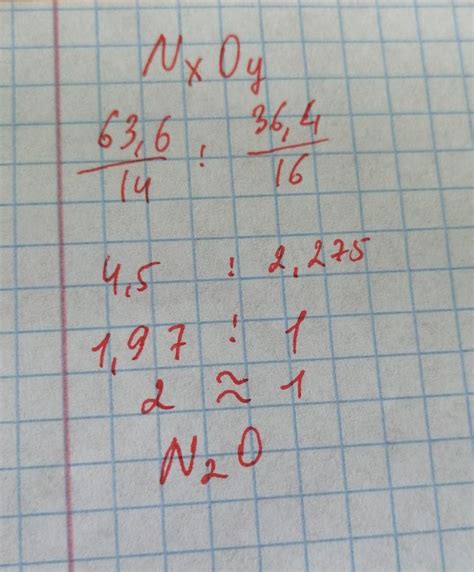 NxOy
63,6/14 : 36,4/16
4,5 : 2,275
1,97 : 1
2 ≈ 1
N2O